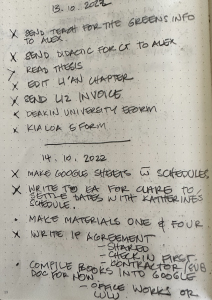 13.10.2022
X SEND TEACH FOR THE GREENS INFO
TO ALEX.
X SEND DIDACTIC FOR CT TO ALEX
/ READ THESIS
X EDIT LI'AN CHAPTER
X SEND LIZ INVOICE
X DEAKIN UNIVERSITY EFORM
X KIALOA S FORM
14.10.2022
X MAKE GOOGLE SHEETS W SCHEDULES
X WRITE TO EA FOR CLARE TO
SETTLE DATES WITH KATHERINE'S
SCHEDULE.
• MAKE MATERIALS ONE & FOUR
X WRITE IP AGREEMENT
- SHARED
- CHECK IN FIRST
- CONTRACTOR/SUB
• COMPILE BOOKS INTO GOOGLE
DOC FOR NOW
- OFFICE WORKS OR